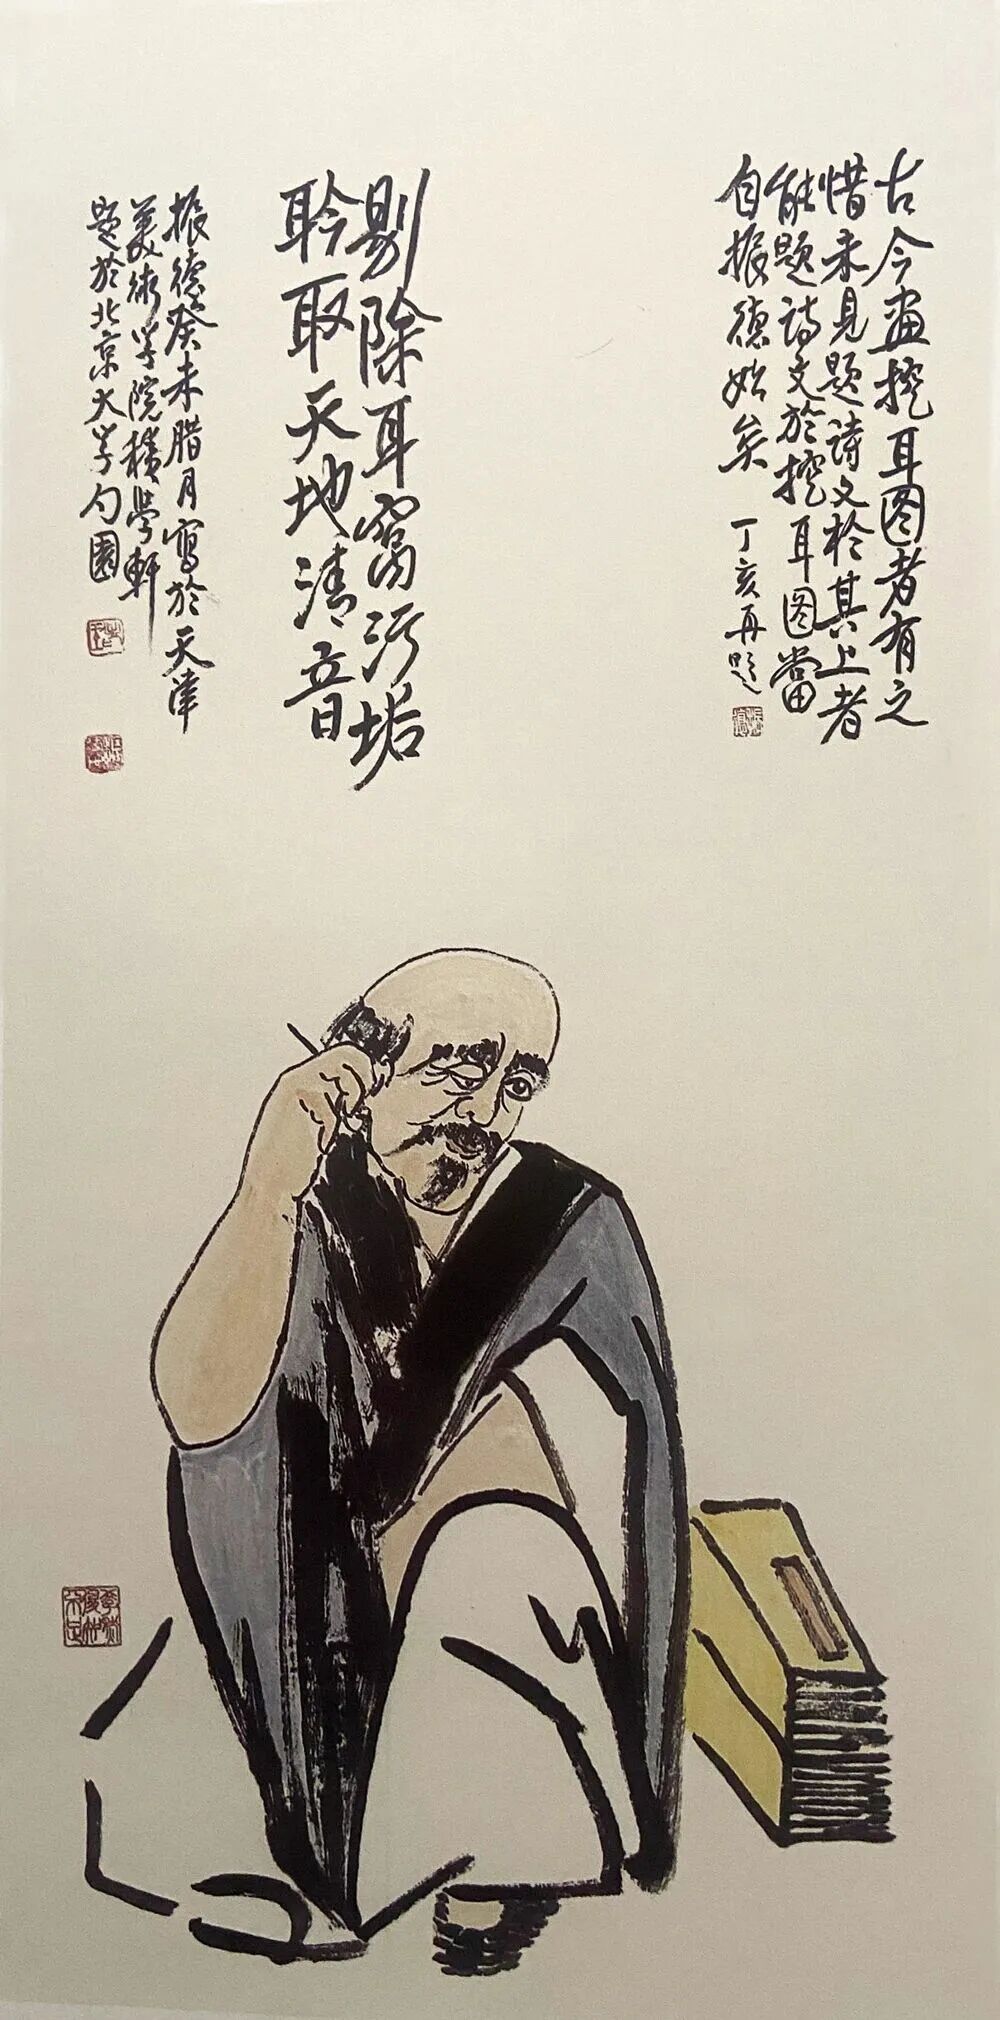 古今画挖耳图者有之
惜未见题诗文於其上者
能题诗文於挖耳图當
自振德始矣 丁亥再题
剔除耳窝污垢
聆取天地清音
振德癸未腊月寫於天津
美術学院積學軒
题於北京大学勺園